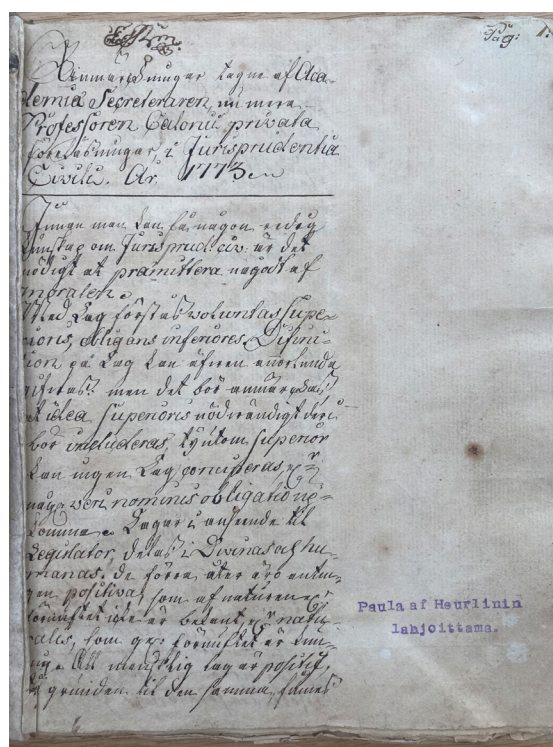 Pag: 1.
Anmärckningar tagne af Aca-
demiæ Secreteraren, nu mera
Professoren Calonii privata
föreläsningar i Jurisprudentia
Civili. År 1773
Innan man kan få någon redig
kunskap om Jurisprud: civ: är det
nödigt at præmittera något af
moralen.
Med Lag förstås voluntas supe-
rioris, obligans inferiores. Difini-
tion på Lag kan äfven annorlunda
men det bör anmärckas
idea superioris nödvändigt deri
bör includeras, ty utom superior
kan ingen Lag concip​eras, ej
veri nominis obligation
komma. Lagar i anseende til
Legislator, delas i Divinas och hu-
manas. de förra åter äro antin-
gen positiva, som af naturen
förnuftet icke är bekant, natu-
rales, som förnuftet är kun-
nig. All mensklig lag är positif,
grunden til den samma, finnes
Paula af Heurlinin
lahjoittama.